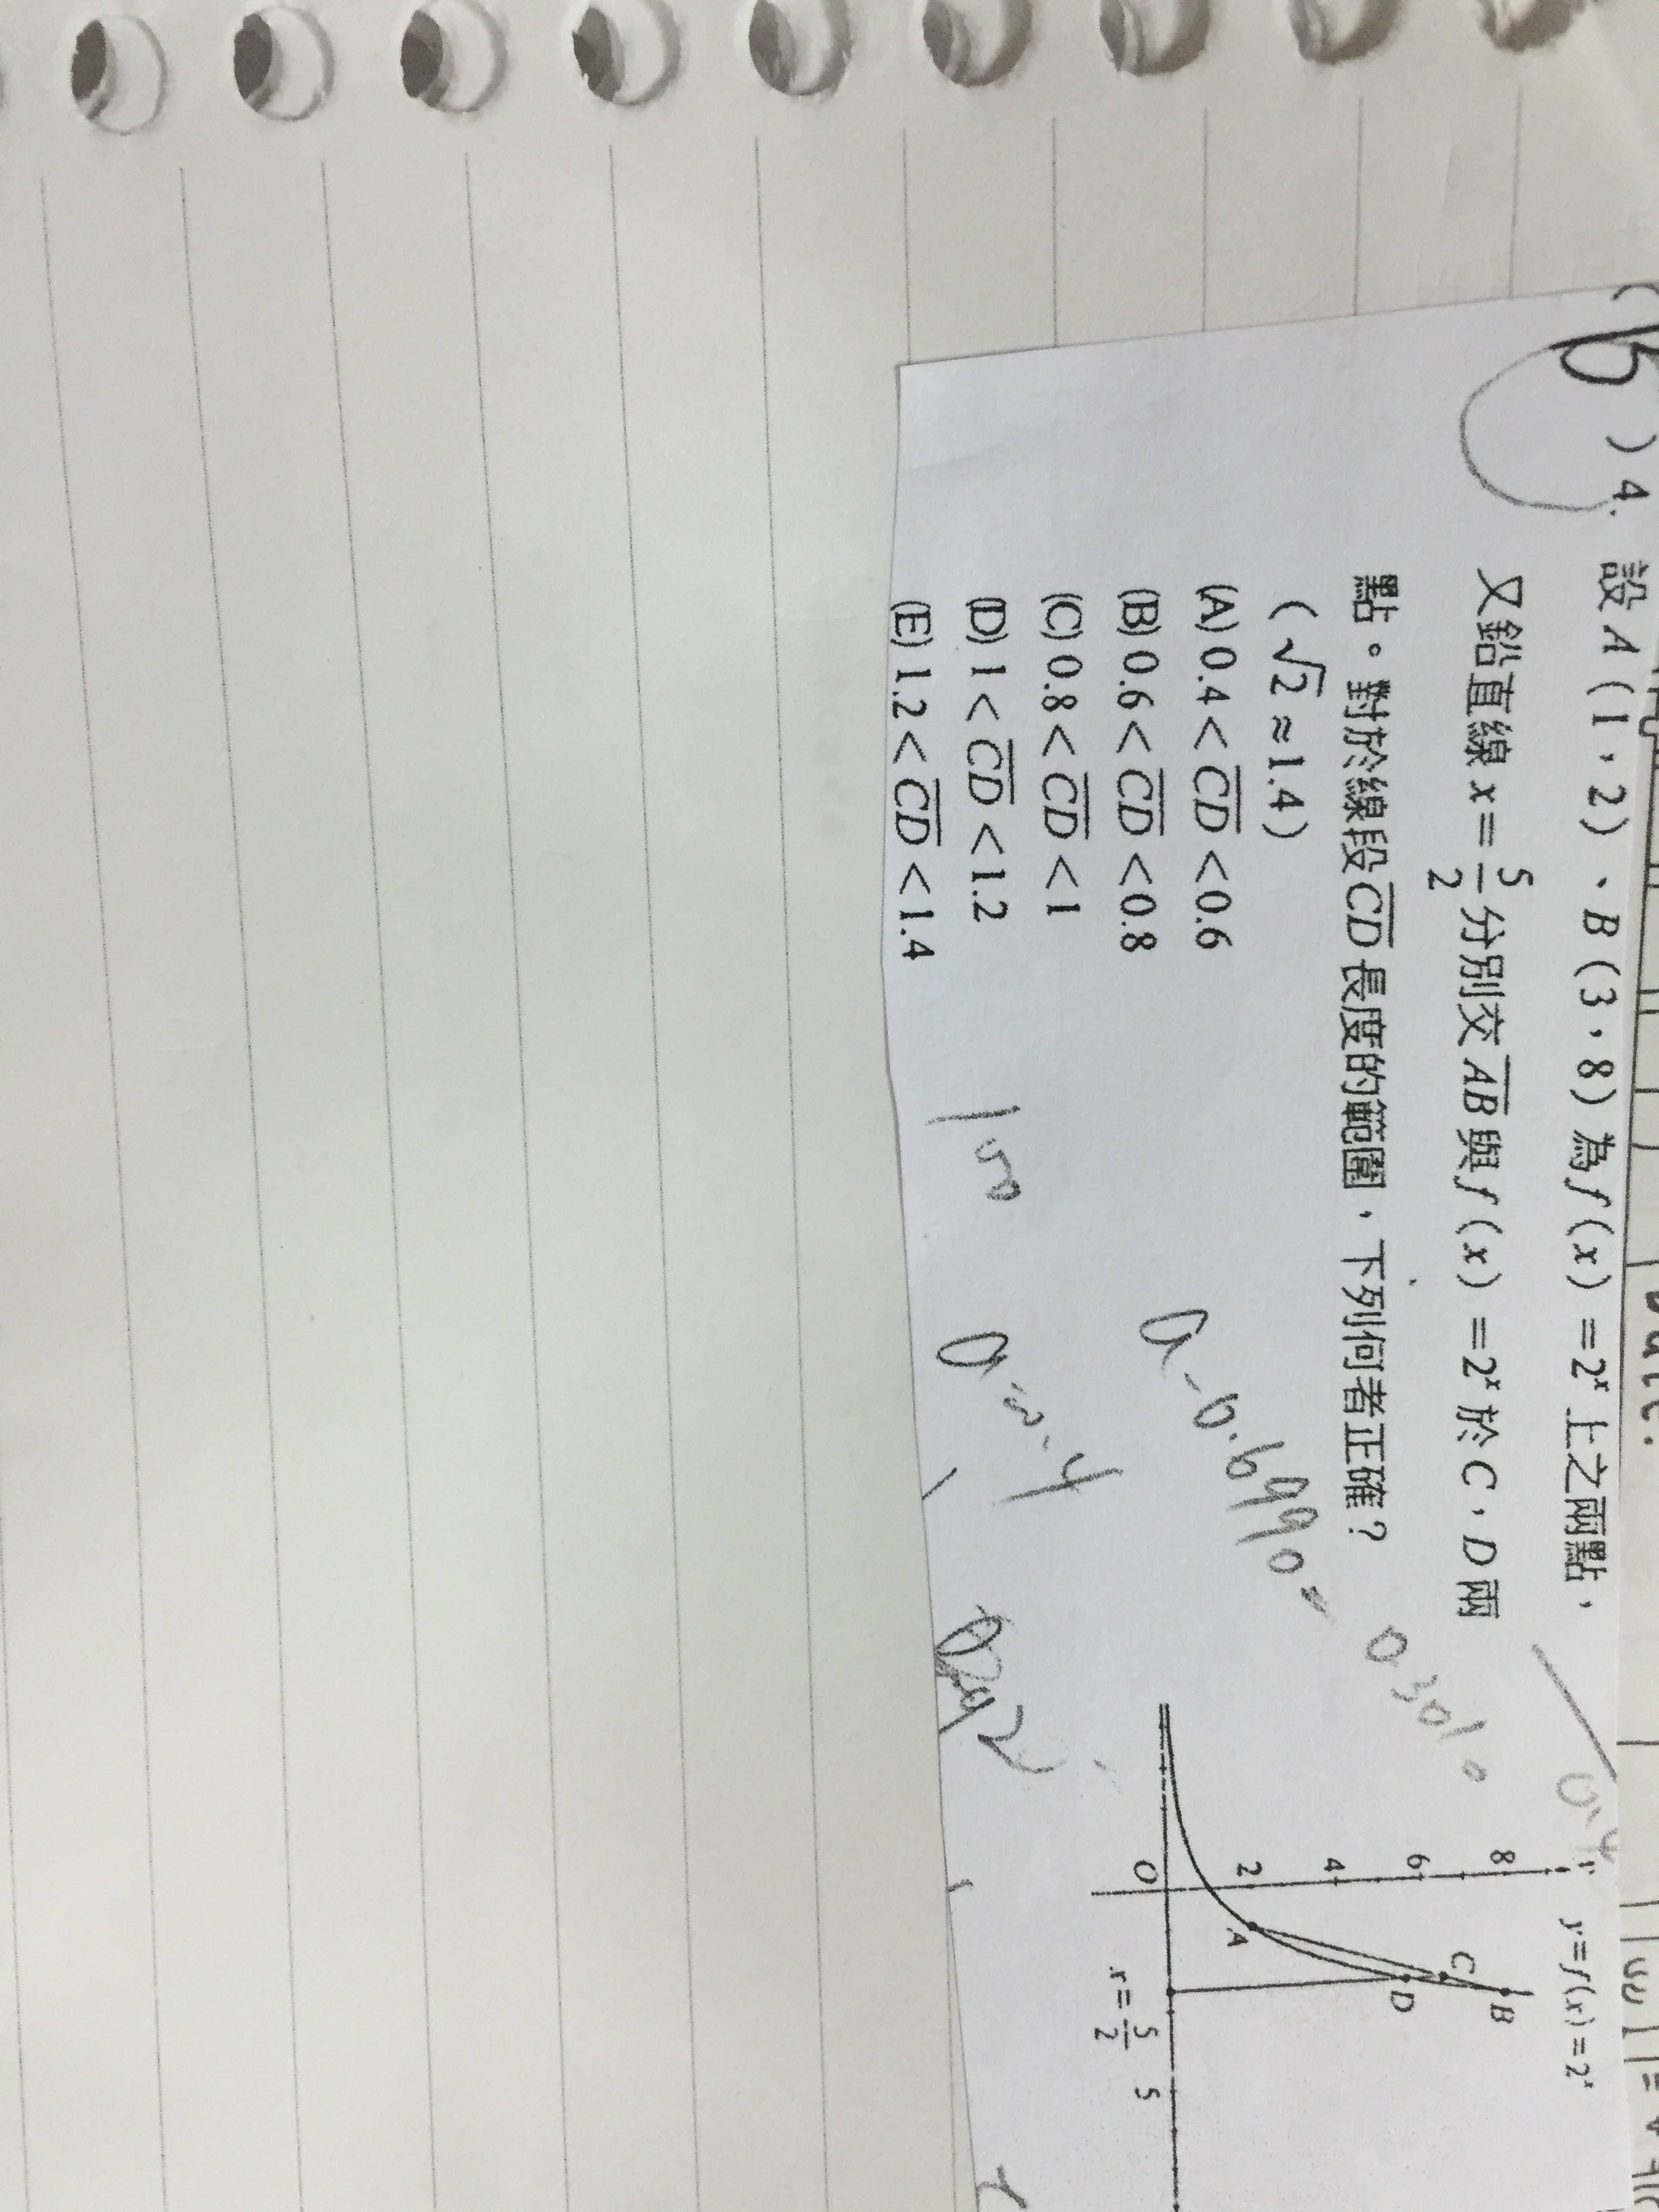 ( B ) 4. 設 A (1,2)、B (3,8) 為 f (x) =2ˣ 上之兩點,
又鉛直線 x= 5/2 分別交 AB 與 f (x) =2ˣ 於 C,D 兩
點。對於線段 CD 長度的範圍,下列何者正確?
( √2 ≈1.4)
(A) 0.4 < CD < 0.6
(B) 0.6 < CD < 0.8
(C) 0.8 < CD < 1
(D) 1 < CD < 1.2
(E) 1.2 < CD < 1.4
y=f(x)=2ˣ
8
6
4
2
O
A
B
C
D
x= 5/2
5
0.3010